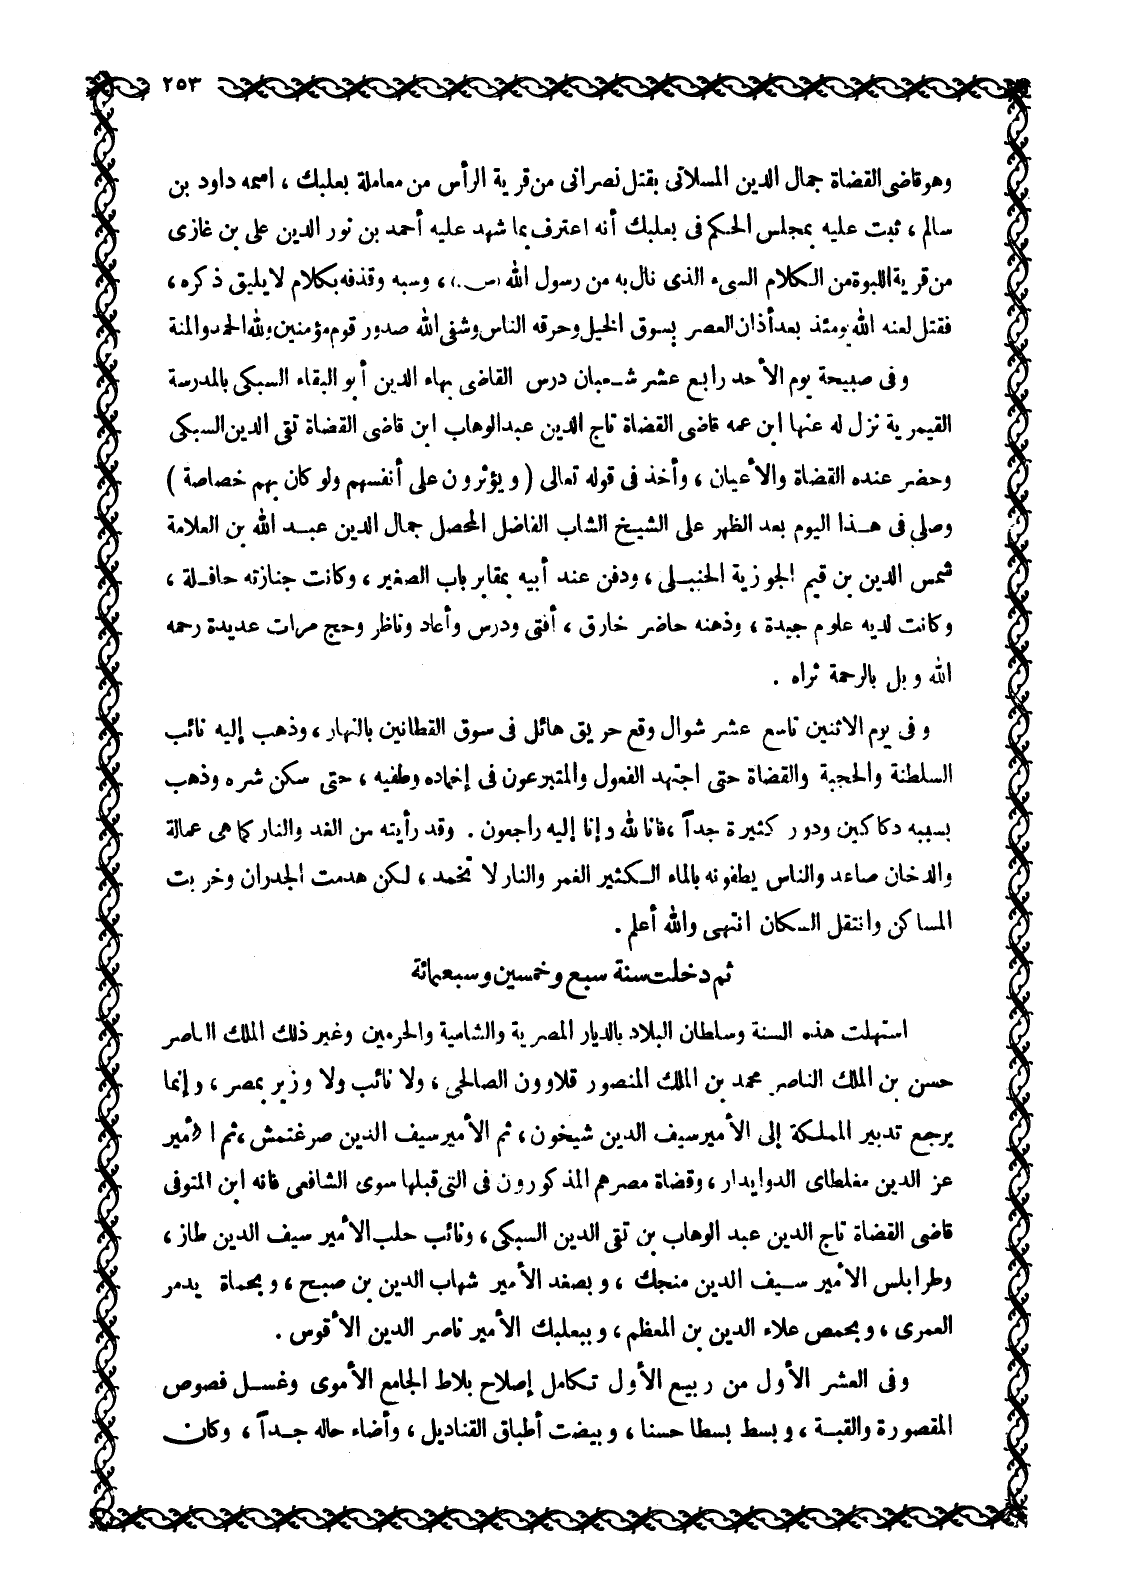 ٢٥٣
وهو قاضى القضاة جمال الدين المسلاتى بقتل نصرانى من قرية الرأس من معاملة بعلبك ، اسمه داود بن
سالم ، ثبت عليه بمجلس الحكم فى بعلبك أنه اعترف بما شهد عليه أحمد بن نور الدين على بن غازى
من قرية اللبوة من الكلام السىء الذى نال به من رسول الله (س.) ، وسبه وقذفه بكلام لا يليق ذكره ،
فقتل لعنه الله يومئذ بعد أذان العصر بسوق الخيل وحرقه الناس وشفى الله صدور قوم مؤمنين ولله الحمد والمنة
وفى صبيحة يوم الأحد رابع عشر شعبان درس القاضى بهاء الدين أبو البقاء السبكى بالمدرسة
القيمرية نزل له عنها ابن عمه قاضى القضاة تاج الدين عبد الوهاب ابن قاضى القضاة تقى الدين السبكى
وحضر عنده القضاة والأعيان ، وأخذ فى قوله تعالى ( ويؤثرون على أنفسهم ولو كان بهم خصاصة )
وصلى فى هذا اليوم بعد الظهر على الشيخ الشاب الفاضل المحصل جمال الدين عبد الله بن العلامة
شمس الدين بن قيم الجوزية الحنبلى ، ودفن عند أبيه بمقابر باب الصغير ، وكانت جنازته حافلة ،
وكانت لديه علوم جيدة ، وذهنه حاضر خارق ، أفتى ودرس وأعاد وناظر وحج مرات عديدة رحمه
الله وبل بالرحمة ثراه .
وفى يوم الاثنين تاسع عشر شوال وقع حريق هائل فى سوق القطانين بالنهار ، وذهب إليه نائب
السلطنة والحجبة والقضاة حتى اجتهد الفعول والمتبرعون فى إخماده وطفيه ، حتى سكن شره وذهب
بسببه دكاكين ودور كثيرة جداً ، فانا لله وإنا إليه راجعون . وقد رأيته من الغد والنار كما هى عمالة
والدخان صاعد والناس يطفونه بالماء الكثير الغمر والنار لا تخمد ، لكن هدمت الجدران وخربت
المساكن وانتقل السكان انتهى والله أعلم .
ثم دخلت سنة سبع وخمسين وسبعمائة
استهلت هذه السنة وسلطان البلاد بالديار المصرية والشامية والحرمين وغير ذلك الملك الناصر
حسن بن الملك الناصر محمد بن الملك المنصور قلاوون الصالحى ، ولا نائب ولا وزير بمصر ، وإنما
يرجع تدبير المملكة إلى الأمير سيف الدين شيخون ، ثم الأمير سيف الدين صرغتمش ، ثم الأمير
عز الدين مغلطاى الدوايدار ، وقضاة مصر هم المذكورون فى التى قبلها سوى الشافعى فانه ابن المتوفى
قاضى القضاة تاج الدين عبد الوهاب بن تقى الدين السبكى ، ونائب حلب الأمير سيف الدين طاز ،
وطرابلس الأمير سيف الدين منجك ، وبصفد الأمير شهاب الدين بن صبح ، وبحماة يدمر
العمرى ، وبحمص علاء الدين بن المعظم ، وببعلبك الأمير ناصر الدين الأقوس .
وفى العشر الأول من ربيع الأول تكامل إصلاح بلاط الجامع الأموى وغسل فصوص
المقصورة والقبة ، وبسط بسطا حسنا ، وبيضت أطباق القناديل ، وأضاء حاله جداً ، وكان